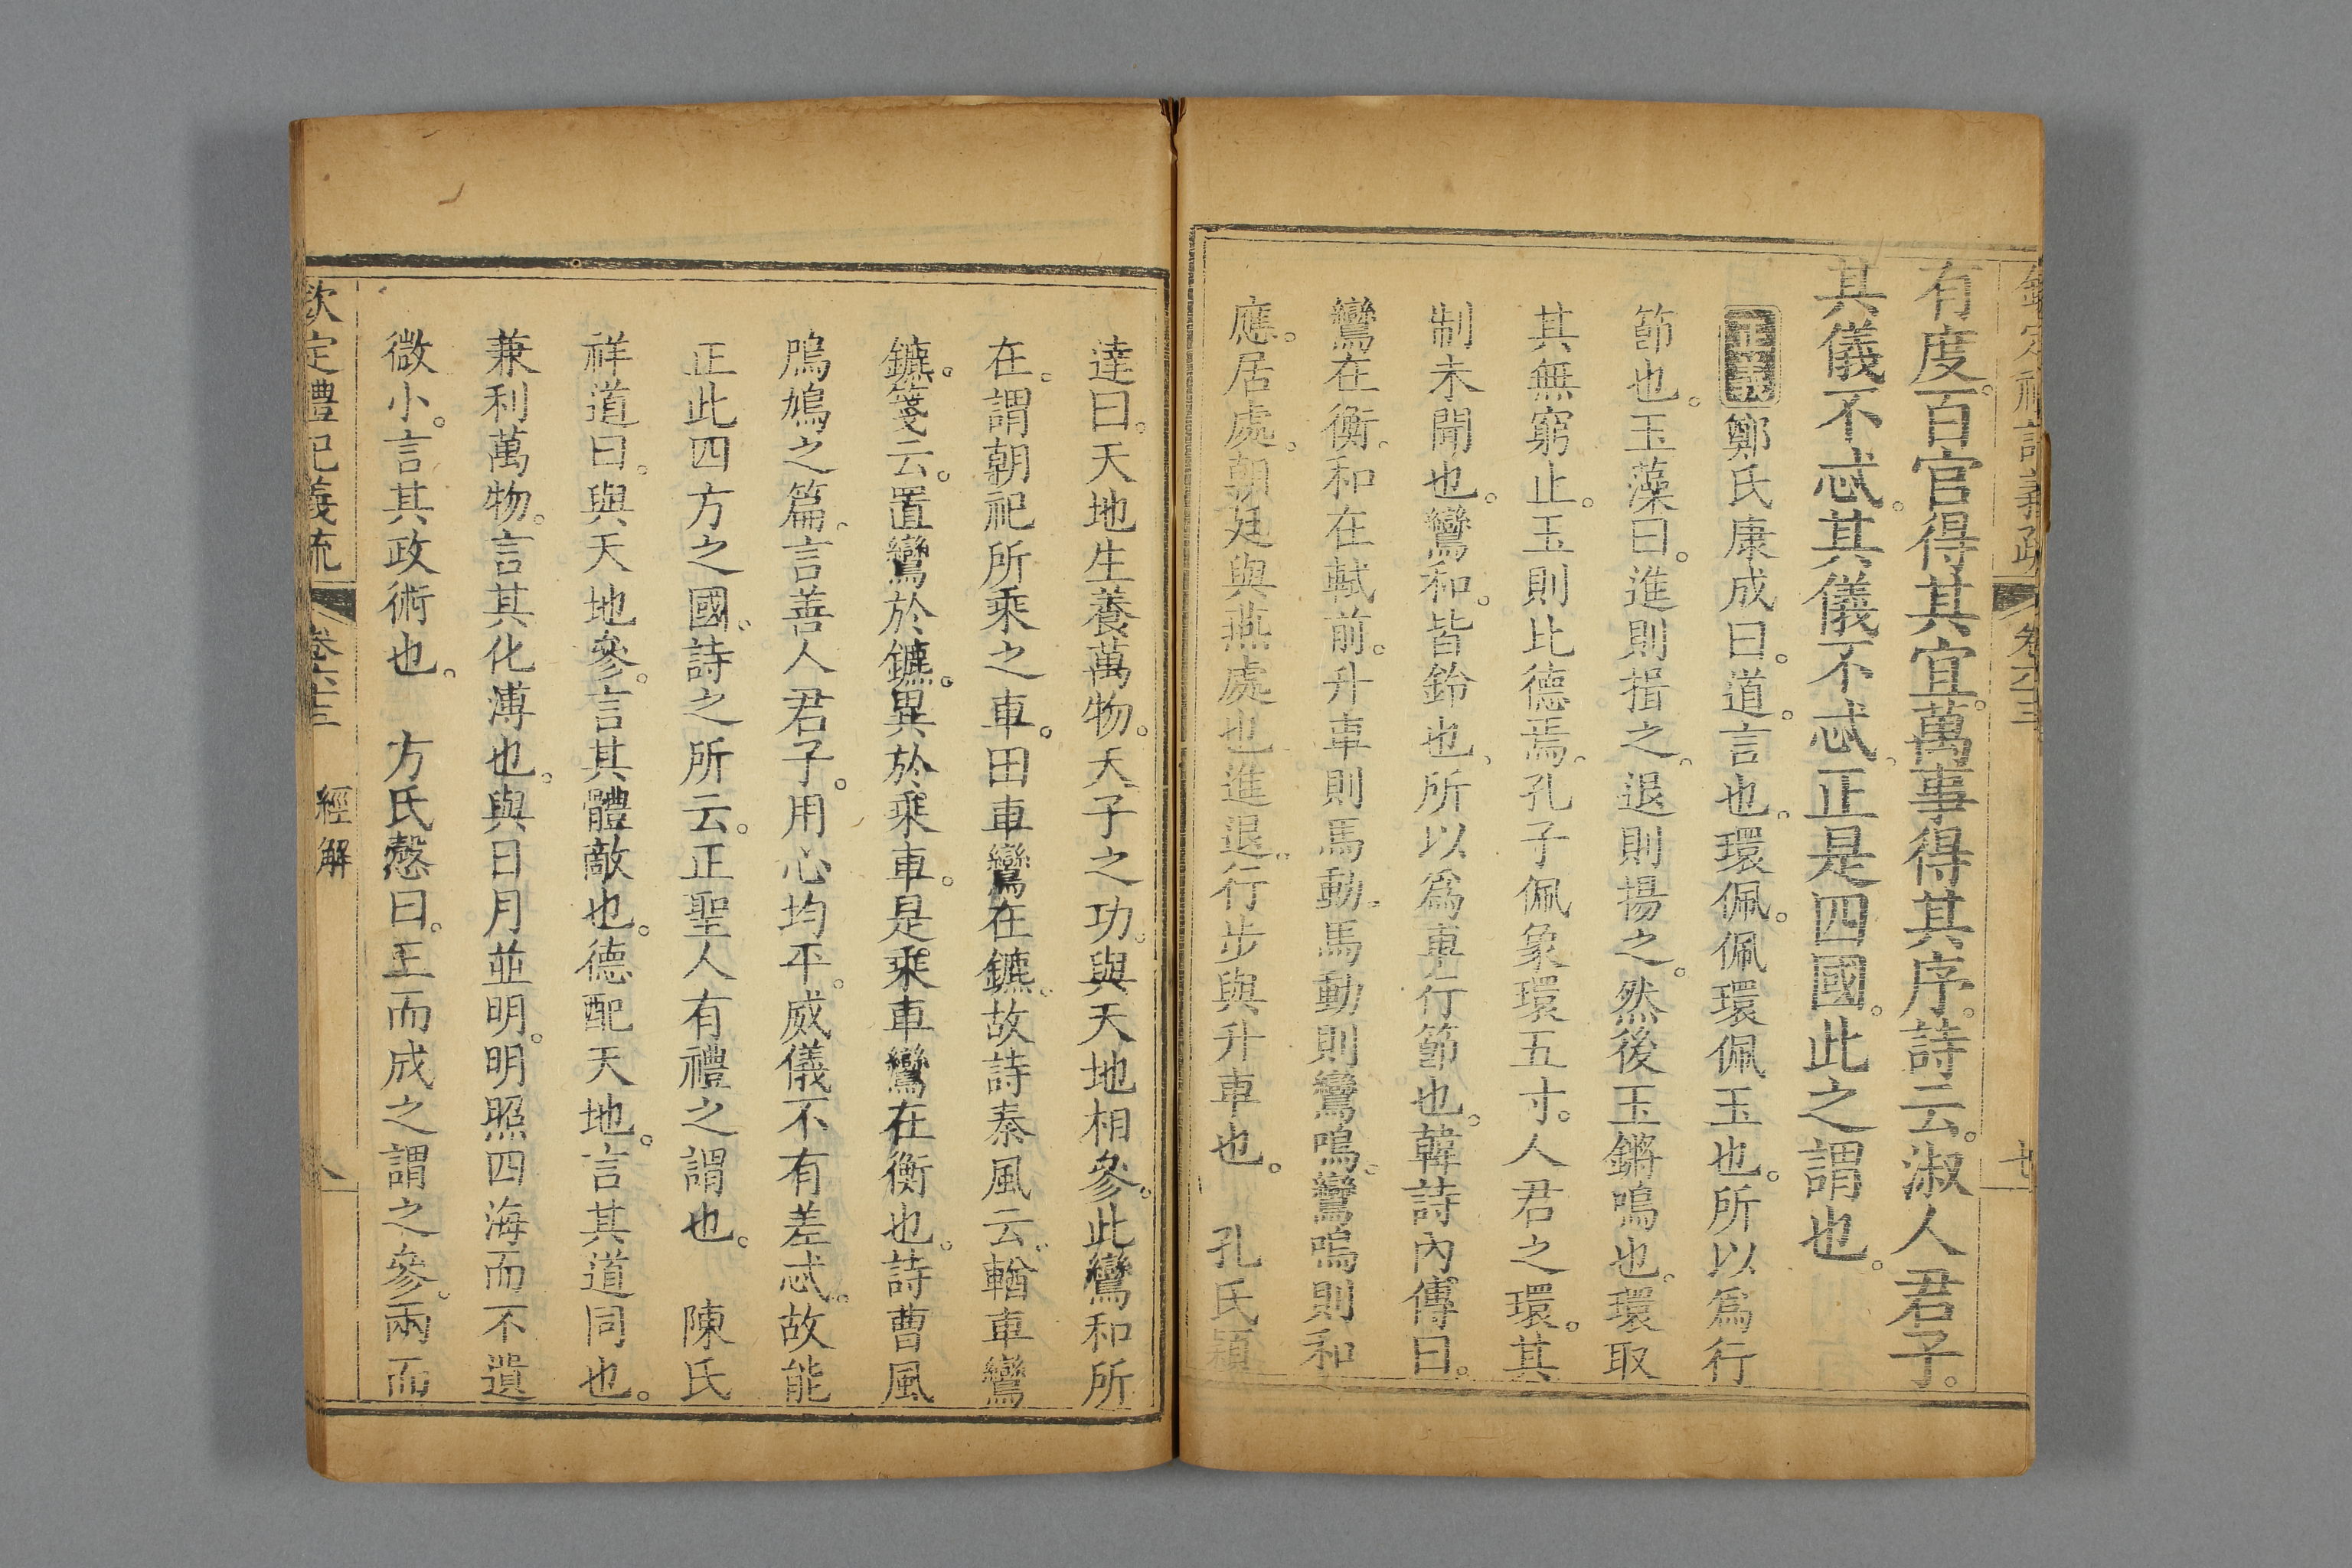 欽定禮記義疏 卷六十三
有度。百官得其宜。萬事得其序。詩云。淑人君子。
其儀不忒。其儀不忒。正是四國。此之謂也。
正義鄭氏康成曰。道。言也。環佩。佩環佩玉也。所以爲行
節也。玉藻曰。進則揖之。退則揚之。然後玉鏘鳴也。環取
其無窮止。玉則比德焉。孔子佩象環五寸。人君之環。其
制未聞也。鸞和。皆鈴也。所以爲車行節也。韓詩內傳曰。
鸞在衡。和在軾前。升車則馬動。馬動則鸞鳴。鸞鳴則和
應。居處。朝廷與燕處也。進退。行步與升車也。 孔氏穎
達曰。天地生養萬物。天子之功。與天地相參。此鸞和所
在。謂朝祀所乘之車。田車鸞在鑣。故詩秦風云。輶車鸞
鑣。箋云。置鸞於鑣。異於乘車。是乘車鸞在衡也。詩曹風
鳲鳩之篇。言善人君子。用心均平。威儀不有差忒。故能
正此四方之國。詩之所云。正聖人有禮之謂也。 陳氏
祥道曰。與天地參。言其體敵也。德配天地。言其道同也。
兼利萬物。言其化溥也。與日月並明。明照四海而不遺
微小。言其政術也。 方氏慤曰。王而成之謂之參。兩而
欽定禮記義疏 卷六十三 經解